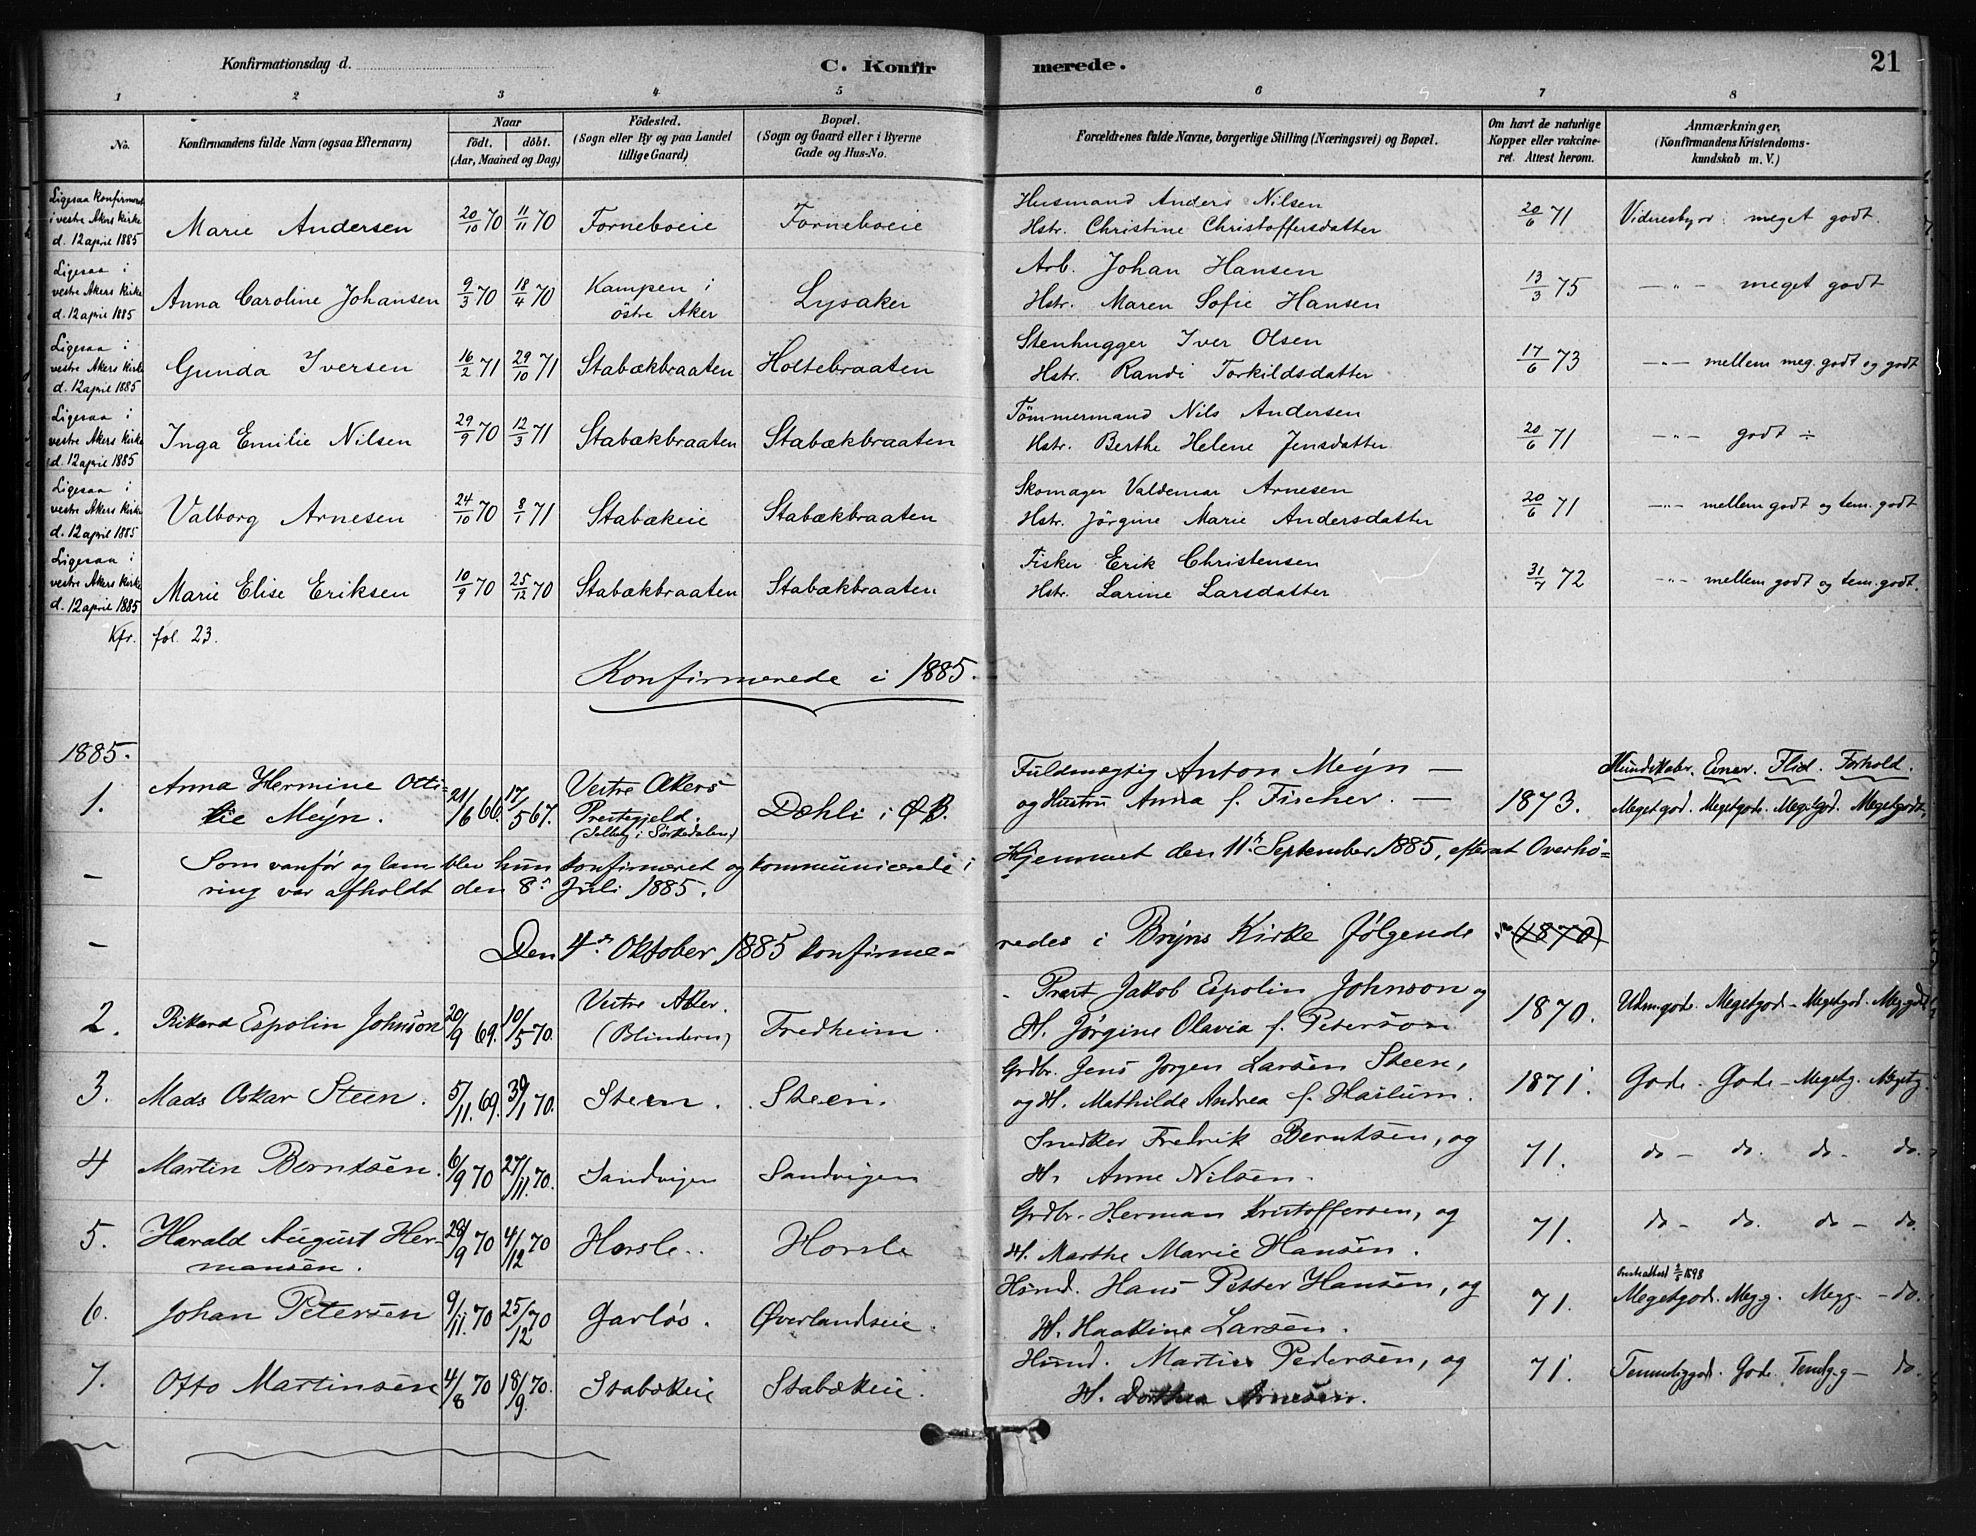 Konfirmationsdag d.
C. Konfirmerede.
21
1 2 3 4 5 6 7 8
No.
Konfirmandens fulde Navn (ogsaa Efternavn)
Naar
födt. döbt.
(Aar, Maaned og Dag)
Födested.
(Sogn eller By og paa Landet
tillige Gaard)
Bopæl.
(Sogn og Gaard eller i Byerne
Gade og Hus-No.
Forældrenes fulde Navne, borgerlige Stilling (Næringsvei) og Bopæl.
Om havt de naturlige
Kopper eller vakcine-
ret. Attest herom.
Anmærkninger,
(Konfirmandens Kristendoms-
kundskab m. V.)
Ligesaa konfirmeret
i vestre Akers kirke
d. 12 april 1885
Marie Andersen 20/10 70 11/11 70 Forneboeie Forneboeie
Husmand Anders Nilsen
Hstr. Christine Christoffersdatter
20/6 71 Vidnesbyrd: meget godt.
Ligesaa i
vestre Akers Kirke
d. 12 april 1885
Anna Caroline Johansen 9/3 70 18/4 70 Kampen i
östre Aker
Lysaker
Arb. Johan Hansen
Hstr. Maren Sofie Hansen
13/3 75 — " — meget godt
Ligesaa i
vestre Akers Kirke
d. 12 april 1885
Gunda Iversen 16/2 71 29/10 71 Stabækbraaten Holtebraaten
Stenhugger Iver Olsen
Hstr. Randi Torkildsdatter
17/6 73 — " — mellem meg. godt og godt
Ligesaa i
vestre Akers Kirke
d. 12 april 1885
Inga Emilie Nilsen 29/9 70 12/3 71 Stabækbraaten Stabækbraaten
Tömmermand Nils Andersen
Hstr. Berthe Helene Jensdatter
20/6 71 — " — godt ÷
Ligesaa i
vestre Akers Kirke
d. 12 april 1885
Valborg Arnesen 24/10 70 8/1 71 Stabækeie Stabækbraaten
Skomager Valdemar Arnesen
Hstr. Jörgine Marie Andersdatter
20/6 71 — " — mellem godt og tem. godt
Ligesaa i
vestre Akers Kirke
d. 12 april 1885
Marie Elise Eriksen 10/9 70 25/12 70 Stabækbraaten Stabækbraaten
Fisker Erik Christensen
Hstr. Larine Larsdatter
31/7 72 — " — mellem godt og tem. godt.
Kfr. fol. 23.
Konfirmerede i 1885.
1885.
Kundskaber. Evner. Flid. Forhold.
1. Anna Hermine Otti-
lie Meÿn. 21/6 66. 17/5 67. Vestre Akers
Prestegjeld.
Dæhli i Ø. B.
Fuldmægtig Anton Meÿn —
og Hustru Anna f. Fischer. —
1873. Megetgod. Megetgode. Megetgod. Megetgodt.
— Som vanför og lam blev hun konfirmeret og kommunicerede i Hjemmet den 11te September 1885, efterat Overhö-
ring var afholdt den 8de Juli 1885.
— Den 4de Oktober 1885 konfirme-
redes i Brÿns Kirke følgende (1870)
2. Rikard Espolin Johnson 20/9 69. 10/5 70. Vestre Aker.
(Blindern)
Fredheim.
Prest Jakob Espolin Johnson og
H. Jørgine Olavia f. Peterson
1870. Udm.gode. Megetgod — Megetgod. Meg.godt
3. Mads Oskar Steen. 5/11. 69. 30/1 70. Steen. Steen.
Grdbr. Jens Jørgen Larsen Steen,
og H. Mathilde Andrea f. Haslum.
1871. Gode. Gode — Megetg. Megetg.
4 Martin Berntsen. 6/9 70 27/11. 70. Sandvigen Sandvigen
Snedker Fredrik Berntsen, og
H. Anne Nilsen.
71. do — do. do — do.
5. Harald August Her-
mansen. 28/9 70 4/12 70 Horsle. Horsle
Grdbr. Herman Kristoffersen, og
H. Marthe Marie Hansen.
71. do — do. do — do.
6. Johan Petersen 9/11. 70 25/12 70 Garløs. Øverlandseie.
Husmd. Hans Petter Hansen, og
H. Haakine Larsen.
71. Megetgode. Meg.g. Megg. — do.
7. Otto Martinsen 4/8 70 18/9. 70. Stabækeie Stabækeie.
Husmd. Martin Pedersen, og
H. Dorthea Arnesen.
71. Temmeliggod. Gode. Temlg.g — do.